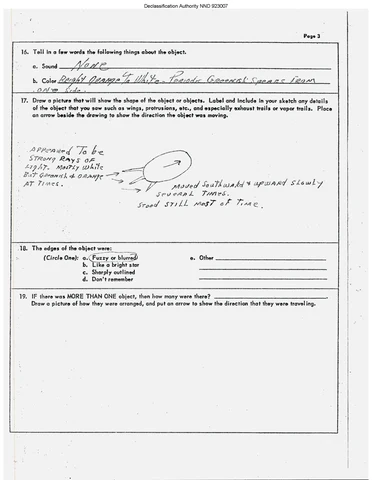 Declassification Authority NND 923007
Page 3
16. Tell in a few words the following things about the object.
a. Sound None
b. Color Bright Orange to White - Periodic Greenish Sparks From
one side.
17. Draw a picture that will show the shape of the object or objects. Label and include in your sketch any details
of the object that you saw such as wings, protrusions, etc., and especially exhaust trails or vapor trails. Place
an arrow beside the drawing to show the direction the object was moving.
APPEARED To be
STRONG RAYS OF
Light. MOSTLY White
BUT GREENISH & ORANGE
AT TIMES.
MOVED SOUTHWARD & UPWARD SLOWLY
SEVERAL TIMES.
STOOD STILL MOST OF TIME.
18. The edges of the object were:
(Circle One): a. Fuzzy or blurred
b. Like a bright star
c. Sharply outlined
d. Don't remember
e. Other
19. IF there was MORE THAN ONE object, then how many were there?
Draw a picture of how they were arranged, and put an arrow to show the direction that they were traveling.